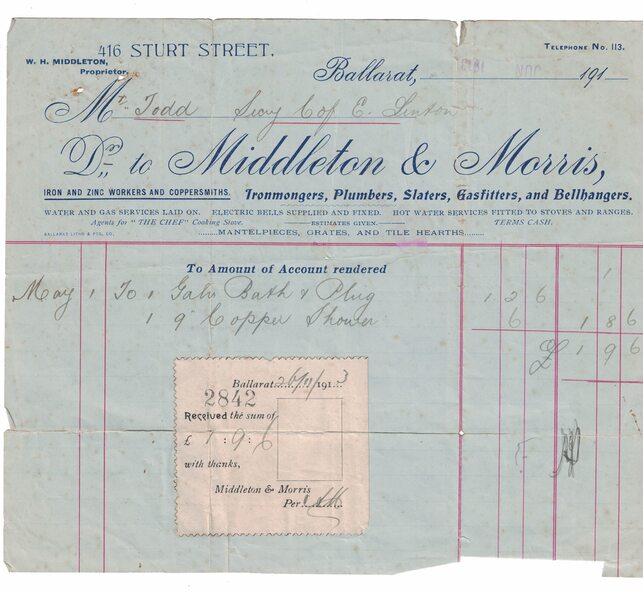 416 STURT STREET.
TELEPHONE NO. 113.
W. H. MIDDLETON,
Proprietor.
Ballarat, NOV 1913 191
Mr. Todd Secy C of E. Linton
Dr. to Middleton & Morris,
IRON AND ZINC WORKERS AND COPPERSMITHS. Ironmongers, Plumbers, Slaters, Gasfitters, and Bellhangers.
WATER AND GAS SERVICES LAID ON. ELECTRIC BELLS SUPPLIED AND FIXED. HOT WATER SERVICES FITTED TO STOVES AND RANGES.
Agents for "THE CHEF" Cooking Stove. ESTIMATES GIVEN. TERMS CASH.
BALLARAT LITHO & PTG. CO.
MANTELPIECES, GRATES, AND TILE HEARTHS.
To Amount of Account rendered 1
May 1 To 1 Galv Bath & Plug 12 6
1 9" Copper Shower 6 18 6
£ 1 9 6
Ballarat 26/11/1913
2842
Received the sum of
£ 1 : 9 : 6
with thanks,
Middleton & Morris
Per